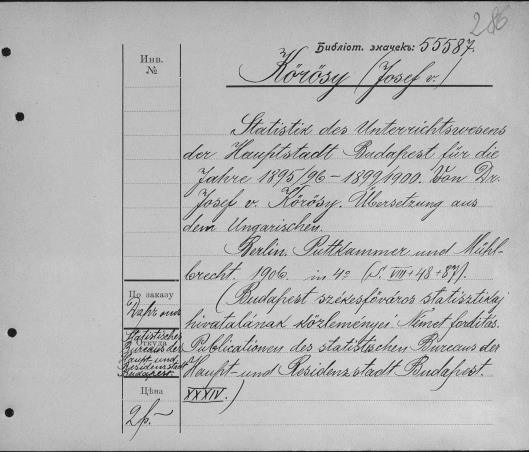 286
Библіот. значекъ: 55587.
Инв.
№
Kőrösy (Josef v.)
Statistik des Unterrichtswesens
der Hauptstadt Budapest für die
Jahre 1895/96 – 1899/1900. Von Dr.
Josef v. Kőrösy. Übersetzung aus
dem Ungarischen.
Berlin. Puttkammer und Mühl-
brecht. 1906. in 4° (S. VIII+48+87).
(Budapest székesfőváros statisztikai
hivatalának közleményei. Német fordítás.
Publicationen des statistischen Bureaus der
Haupt- und Residenzstadt Budapest.
XXXIV.)
По заказу
Даръ
Откуда
Statistischen
Bureaus der
Haupt- und
Residenzstadt
Budapest.
Цѣна
2 р. –